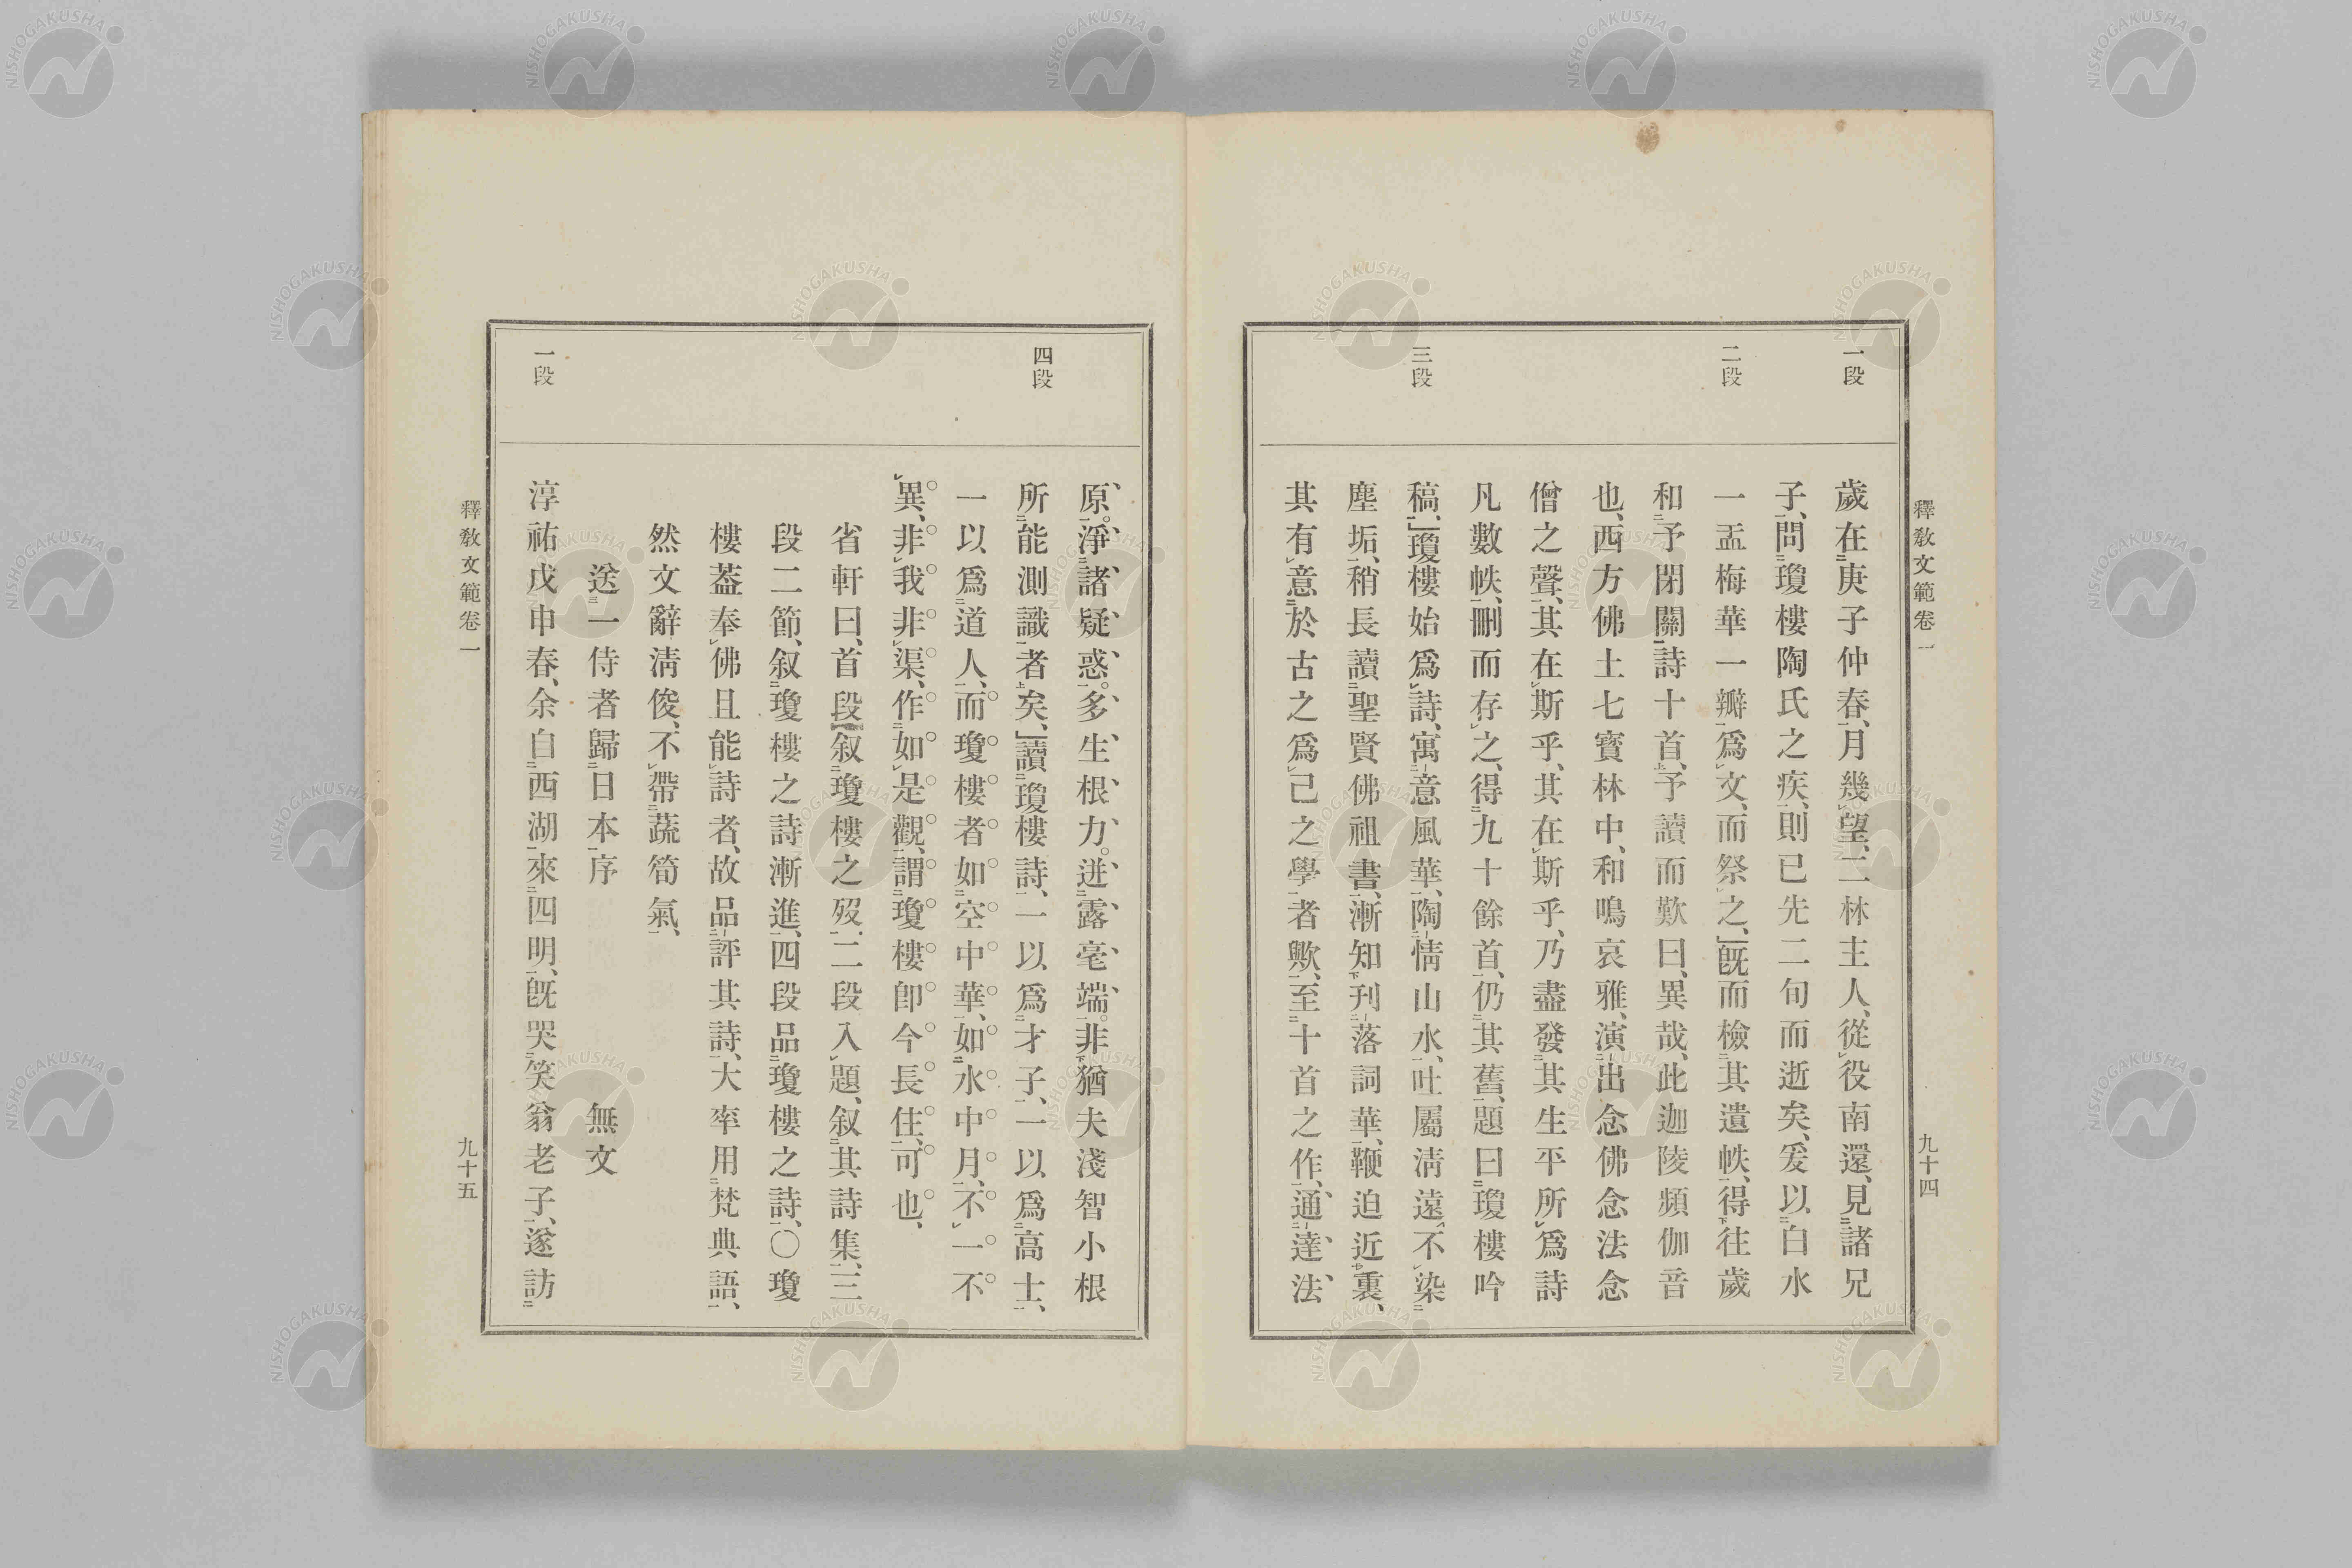 釋教文範卷一
九十四
一段
二段
三段
歲在庚子仲春、月幾望、二林主人、從役南還、見諸兄
子、問瓊樓陶氏之疾、則已先二旬而逝矣、爰以白水
一盂梅華一瓣爲文、而祭之、」旣而檢其遺帙、得往歲
和予閉關詩十首、予讀而歎曰、異哉、此迦陵頻伽音
也、西方佛土七寶林中、和鳴哀雅、演出念佛念法念
僧之聲、其在斯乎、其在斯乎、乃盡發其生平所爲詩
凡數帙、刪而存之、得九十餘首、仍其舊、題曰瓊樓吟
稿、」瓊樓始爲詩、寓意風華、陶情山水、吐屬淸遠、不染
塵垢、稍長讀聖賢佛祖書、漸知刊落詞華、鞭迫近裏、
其有意於古之爲己之學者歟、至十首之作、通達法
四段
一段
原。淨諸疑惑。多生根力。迸露毫端。非猶夫淺智小根
所能測識者矣、」讀瓊樓詩、一以爲才子、一以爲高士、
一以爲道人、而瓊樓者如空中華、如水中月、不一不
異、非我非渠、作如是觀、謂瓊樓卽今長住、可也、
省軒曰、首段叙瓊樓之歿、二段入題、叙其詩集、三
段二節、叙瓊樓之詩漸進、四段品瓊樓之詩、〇瓊
樓葢奉佛且能詩者、故品評其詩、大率用梵典語、
然文辭淸俊、不帶蔬筍氣、
送一侍者歸日本序　無文
淳祐戊申春、余自西湖來四明、旣哭笑翁老子、遂訪
釋教文範卷一
九十五
NISHOGAKUSHA